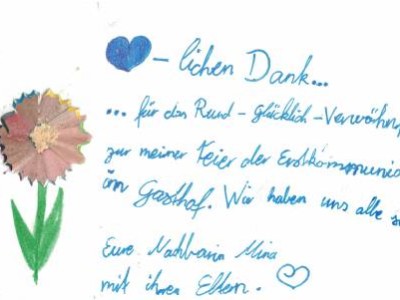 ♥-lichen Dank...
... für das Rund-Glücklich-Verwöhn
zur meiner Feier der Erstkommunio
im Gasthof. Wir haben uns alle
Eure Nahbarin Mina
mit ihren Eltern. ♡